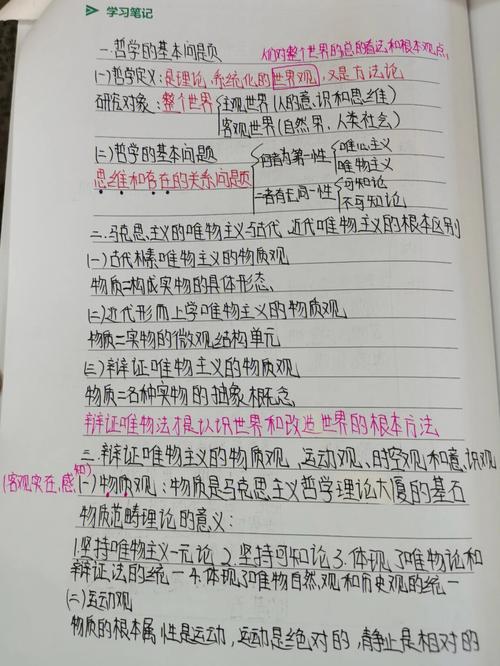 学习笔记
一.哲学的基本问题
人们对整个世界的总的看法和根本观点
(一)哲学定义:是理论、系统化的世界观,又是方法论
研究对象:整个世界
主观世界(人的意识和思维)
客观世界(自然界、人类社会)
(二)哲学的基本问题
思维和存在的关系问题
何者为第一性
唯心主义
唯物主义
二者有无同一性
可知论
不可知论
二.马克思主义的唯物主义与古代、近代唯物主义的根本区别
(一)古代朴素唯物主义的物质观
物质=构成实物的具体形态、
(二)近代形而上学唯物主义的物质观
物质=实物的微观结构单元
(三)辩证唯物主义的物质观
物质=各种实物的抽象概念
辩证唯物法才是认识世界和改造世界的根本方法
三.辩证唯物主义的物质观、运动观、时空观和意识观
(客观实在,感知)
(一)物质观:物质是马克思主义哲学理论大厦的基石
物质范畴理论的意义:
1.坚持唯物主义一元论 2.坚持可知论 3.体现了唯物论和
辩证法的统一 4.体现了唯物自然观和历史观的统一
(二)运动观
物质的根本属性是运动,运动是绝对的,静止是相对的